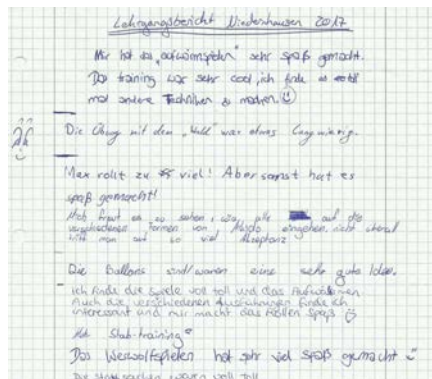 Lehrgangsbericht Niedershausen 2017
Mir hat das „aufwärmspielen" sehr spaß gemacht.
Das training war sehr cool, ich finde es
mal andere Techniken zu machen ☺
Die Übung mit dem „Wald" war etwas langweilig.
Max rollt zu viel! Aber sonst hat es
spaß gemacht!
Mich freut es zu sehen, wie alle auf die
verschiedenen Formen von Aikido eingehen, nicht überall
trifft man auf so viel Akzeptanz
Die Ballons sind/waren eine sehr gute Idee.
Ich finde die Spiele voll toll und das Aufwärmen
Auch die verschiedenen Ausführungen finde ich
interessant und mir macht das Rollen Spaß
Stab-training
Das Werwolfspielen hat sehr viel Spaß gemacht
Die waren voll toll